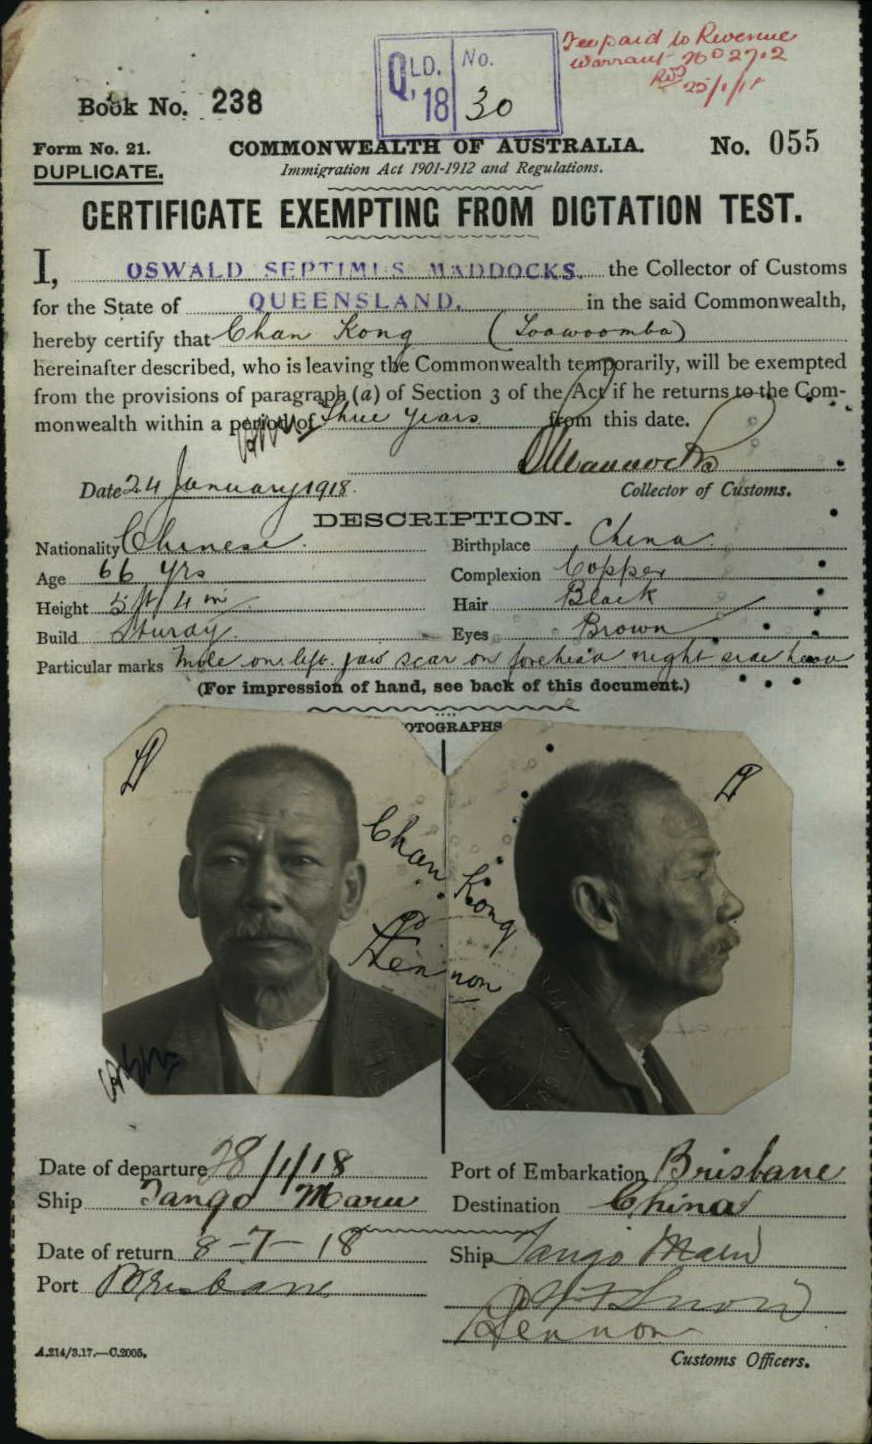 QLD. No.
'18 30
Fee paid to Revenue
Warrant No 2712
25/1/18
Book No. 238
Form No. 21.
DUPLICATE.
COMMONWEALTH OF AUSTRALIA.
No. 055
Immigration Act 1901-1912 and Regulations.
CERTIFICATE EXEMPTING FROM DICTATION TEST.
I, OSWALD SEPTIMUS MADDOCKS, the Collector of Customs
for the State of QUEENSLAND. in the said Commonwealth,
hereby certify that Chan Kong (Toowoomba)
hereinafter described, who is leaving the Commonwealth temporarily, will be exempted
from the provisions of paragraph (a) of Section 3 of the Act if he returns to the Com-
monwealth within a period of Three Years from this date.
Date 24 January 1918.
Collector of Customs.
DESCRIPTION.
Nationality Chinese. Birthplace China.
Age 66 yrs Complexion Copper
Height 5 ft 4 in Hair Black
Build Sturdy. Eyes Brown
Particular marks Mole on left jaw scar on forehead right side
(For impression of hand, see back of this document.)
OTOGRAPHS
Chan Kong
Lennon
Date of departure 28/1/18 Port of Embarkation Brisbane
Ship Tango Maru Destination China
Date of return 8-7-18 Ship Tango Maru
Port Brisbane
Snow
Lennon
A.214/3.17.—C.2005.
Customs Officers.